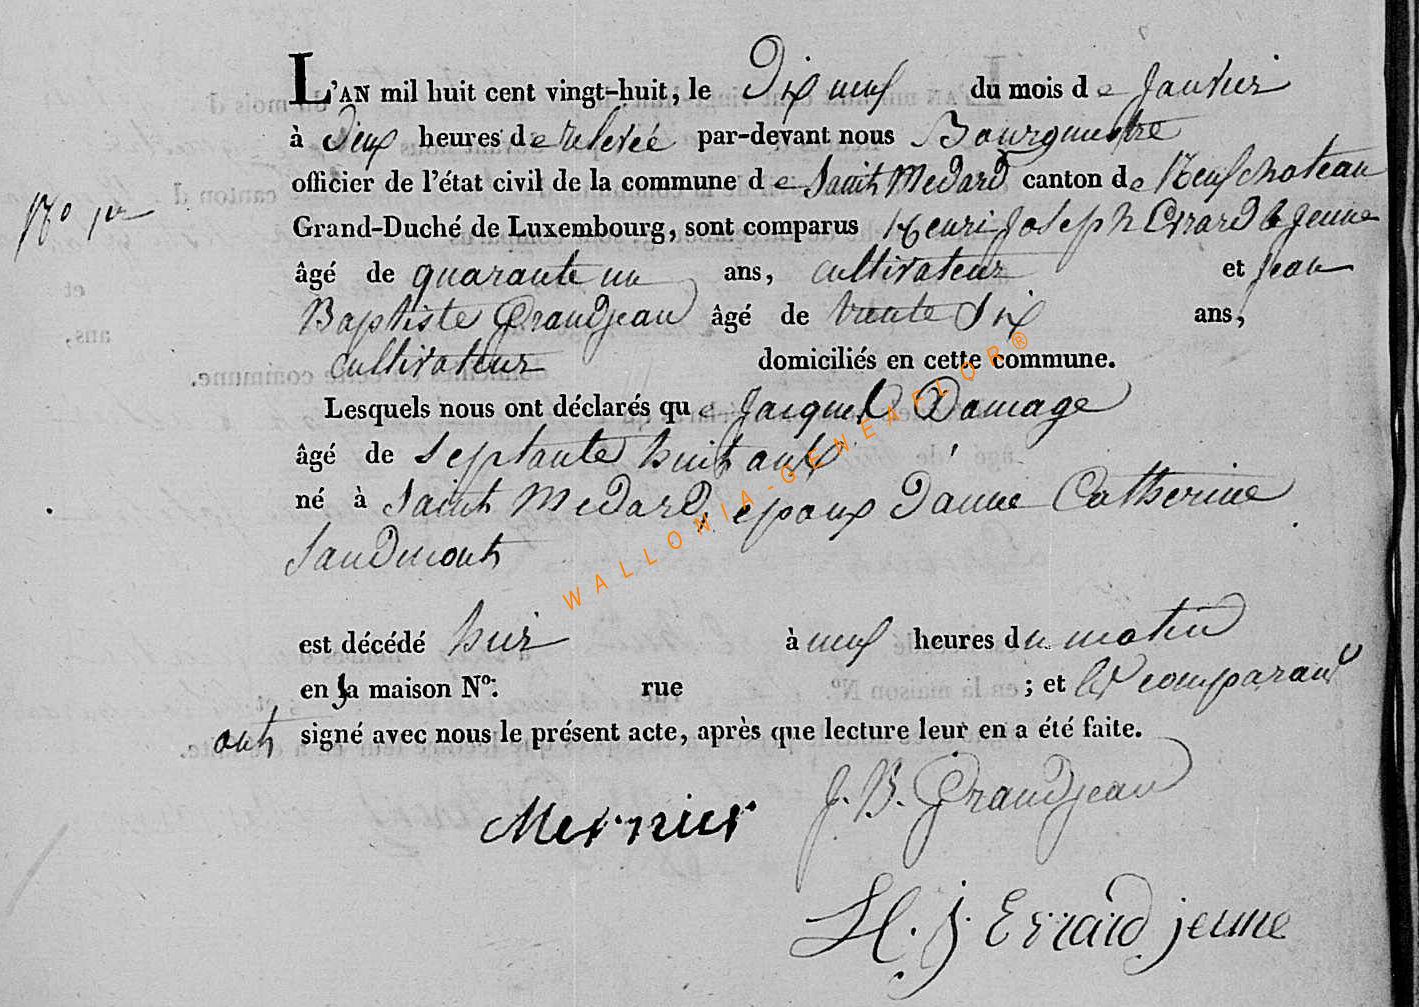 L'AN mil huit cent vingt-huit, le Dix neuf du mois de Janvier
à Deux heures de relevée par-devant nous Bourgmestre
officier de l'état civil de la commune de Saint Medard canton de Neufchateau
N° 1er
Grand-Duché de Luxembourg, sont comparus Henri Joseph Errard le Jeune
âgé de quarante un ans, cultivateur et Jean
Baptiste Grandjean âgé de trente Six ans,
cultivateur domiciliés en cette commune.
Lesquels nous ont déclarés que Jacques Damage
âgé de Septante huit ans
né à Saint Medard, epoux D'anne Catherine
Saudmont
est décédé hier à neuf heures du matin
en sa maison N°: rue ; et les comparans
ont signé avec nous le présent acte, après que lecture leur en a été faite.
Mernier J. B. Grandjean
H. J Errard jeune
WALLONIA-GENEAFLOR®